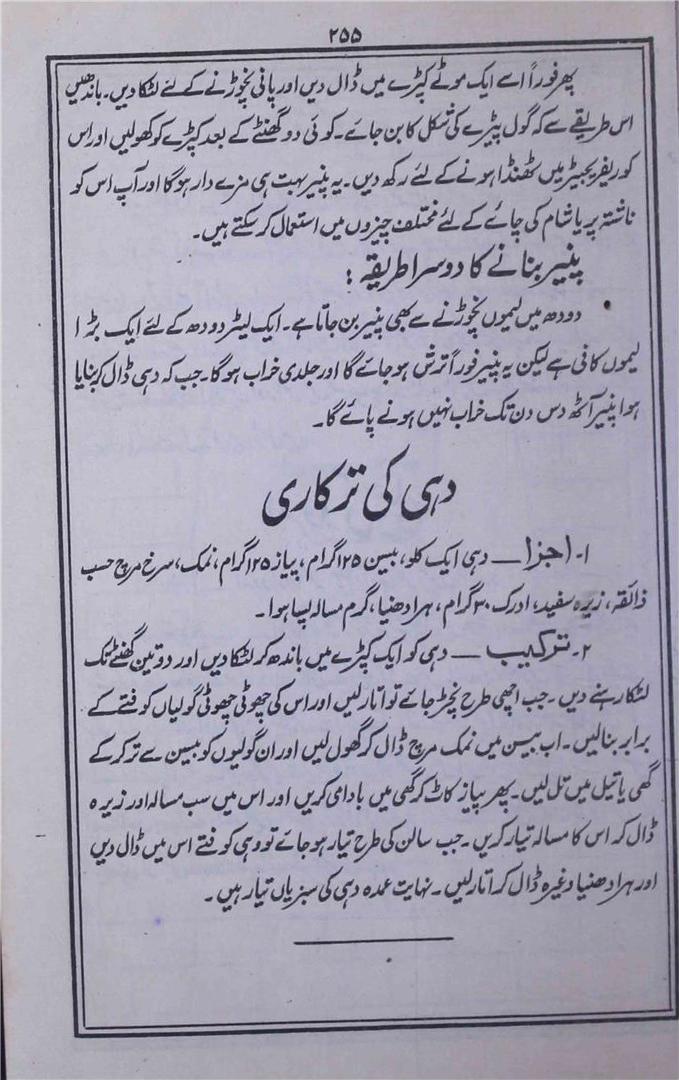 ۲۵۵
پھر فوراً اسے ایک موٹے کپڑے میں ڈال دیں اور پانی نچوڑنے کے لئے لٹکا دیں۔ باندھیں
اس طریقے سے کہ گول پیڑے کی شکل کا بن جائے۔ کوئی دو گھنٹے کے بعد کپڑے کو کھولیں اور اس
کو ریفریجیٹر میں ٹھنڈا ہونے کے لئے رکھ دیں۔ یہ پنیر بہت ہی مزے دار ہو گا اور آپ اس کو
ناشتہ پر یا شام کی چائے کے لئے مختلف چیزوں میں استعمال کر سکتے ہیں۔
پنیر بنانے کا دوسرا طریقہ :
دودھ میں لیموں نچوڑنے سے بھی پنیر بن جاتا ہے۔ ایک لیٹر دودھ کے لئے ایک بڑا
لیموں کافی ہے لیکن یہ پنیر فوراً ترش ہو جائے گا اور جلدی خراب ہو گا۔ جب کہ دہی ڈال کر بنایا
ہوا پنیر آٹھ دس دن تک خراب نہیں ہونے پائے گا۔
دہی کی ترکاری
۱۔ اجزا — دہی ایک کلو، بیسن ۱۲۵ گرام، پیاز ۱۲۵ گرام، نمک، سرخ مرچ حسب
ذائقہ، زیرہ سفید، ادرک ۳۰ گرام، ہرا دھنیا، گرم مسالہ پسا ہوا۔
۲۔ ترکیب — دہی کو ایک کپڑے میں باندھ کر لٹکا دیں اور دو تین گھنٹے تک
لٹکا رہنے دیں۔ جب اچھی طرح نچڑ جائے تو اتار لیں اور اس کی چھوٹی چھوٹی گولیاں کوفتے کے
برابر بنا لیں۔ اب بیسن میں نمک مرچ ڈال کر گھول لیں اور ان گولیوں کو بیسن سے تر کر کے
گھی یا تیل میں تل لیں۔ پھر پیاز کاٹ کر گھی میں بادامی کریں اور اس میں سب مسالہ اور زیرہ
ڈال کر اس کا مسالہ تیار کریں۔ جب سالن کی طرح تیار ہو جائے تو دہی کوفتے اس میں ڈال دیں
اور ہرا دھنیا وغیرہ ڈال کر اتار لیں۔ نہایت عمدہ دہی کی سبزیاں تیار ہیں۔